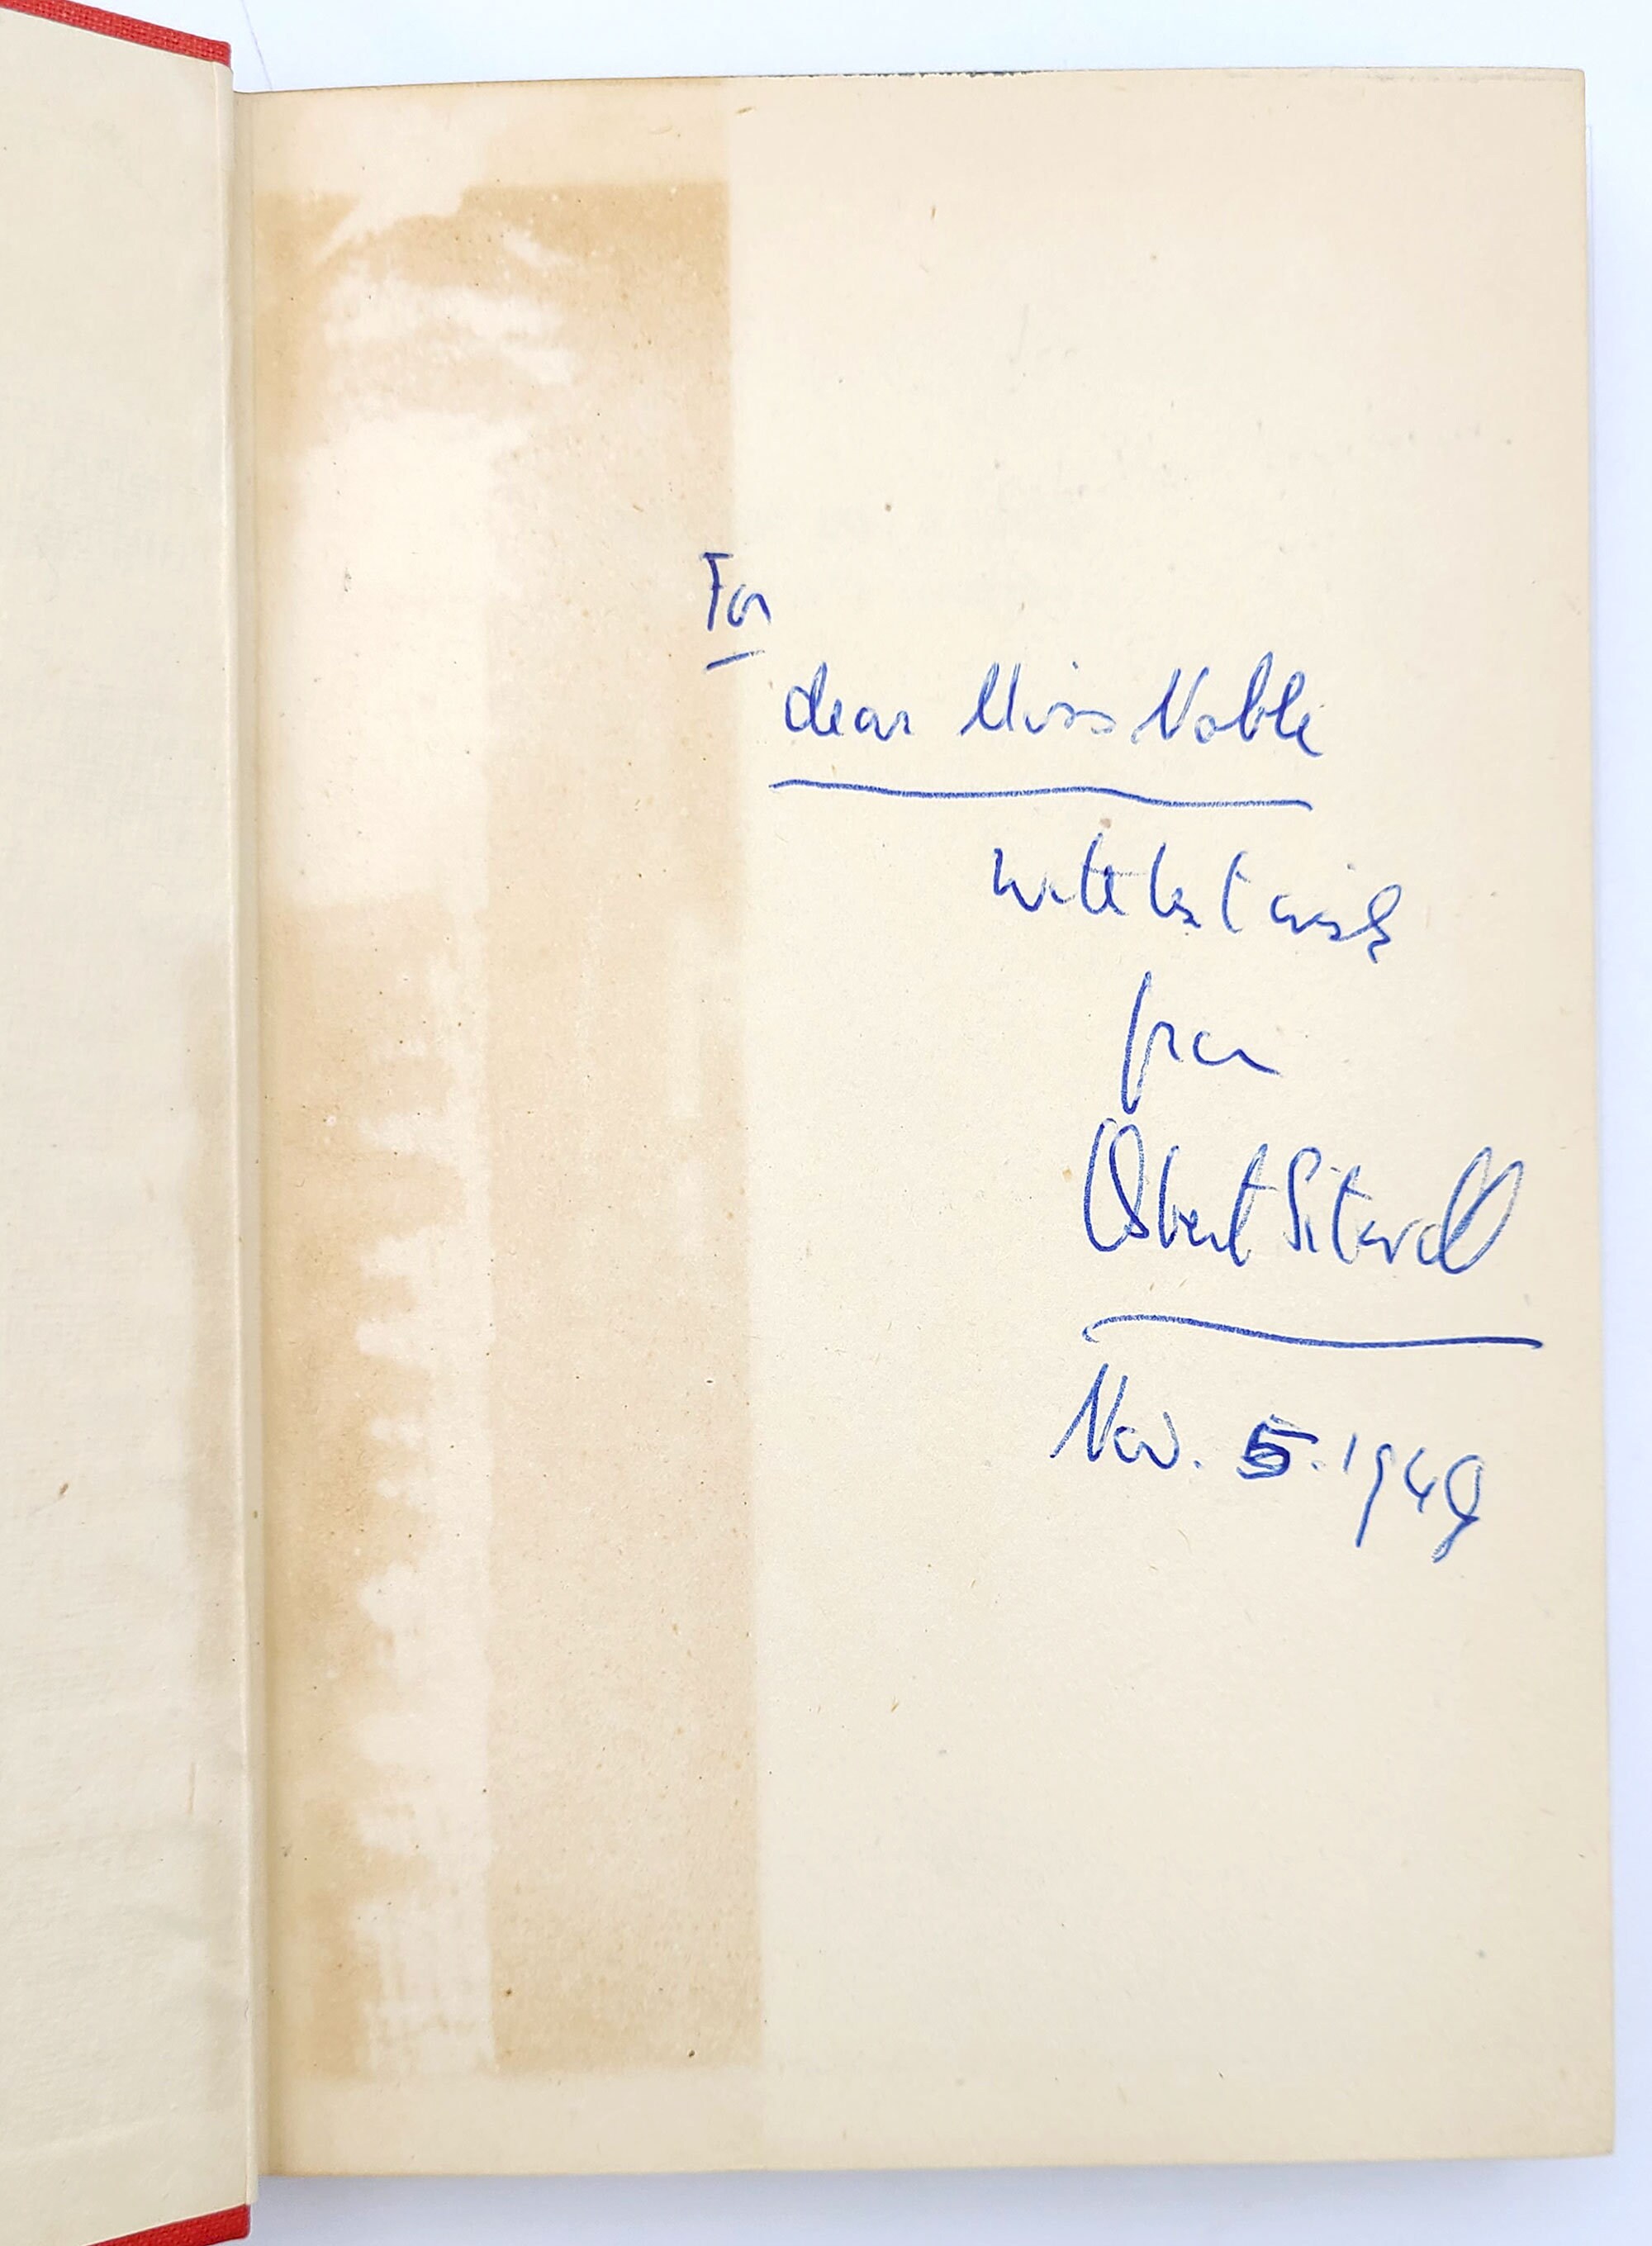 For
dear Miss Noble
with best wishes
from
Osbert Sitwell
Nov. 5. 1949